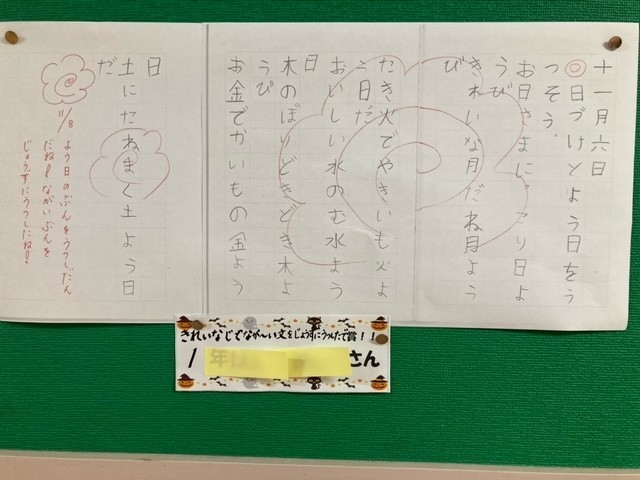 十一月六日
◎日づけとよう日をう
つそう。
お日さまにっこり日よ
うび
きれいな月だね月よう
び
たき火でやきいも火よ
う日だ
おいしい水のむ水よう
日
木のぼりどきどき木よ
うび
お金でかいもの金よう
日
土にたねまく土よう日
だ
11/8
よう日のぶんをうつしたん
だね！ながいぶんを
じょうずにうつしたね！
きれいなじでなが〜い文をじょうずにうつしたで賞！！
1年
さん